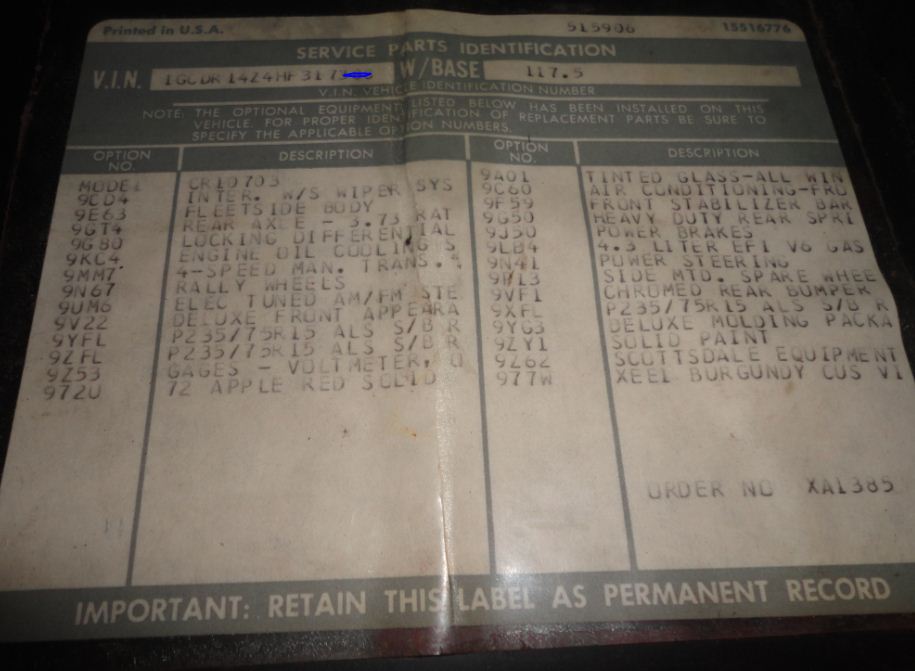 Printed in U.S.A. 515906 15516776
SERVICE PARTS IDENTIFICATION
V.I.N. 1GCDR14Z4HF317 W/BASE 117.5
V.I.N. VEHICLE IDENTIFICATION NUMBER
NOTE: THE OPTIONAL EQUIPMENT LISTED BELOW HAS BEEN INSTALLED ON THIS
VEHICLE. FOR PROPER IDENTIFICATION OF REPLACEMENT PARTS BE SURE TO
SPECIFY THE APPLICABLE OPTION NUMBERS.
OPTION NO. DESCRIPTION
MODEL CR10703
9CD4 INTER. W/S WIPER SYS
9E63 FLEETSIDE BODY
9GT4 REAR AXLE - 3.73 RAT
9G80 LOCKING DIFFERENTIAL
9KC4 ENGINE OIL COOLING S
9MM7 4-SPEED MAN. TRANS.
9N67 RALLY WHEELS
9UM6 ELEC TUNED AM/FM STE
9V22 DELUXE FRONT APPEARA
9YFL P235/75R15 ALS S/B R
9ZFL P235/75R15 ALS S/B R
9Z53 GAGES - VOLTMETER, O
972U 72 APPLE RED SOLID
OPTION NO. DESCRIPTION
9A01 TINTED GLASS-ALL WIN
9C60 AIR CONDITIONING-FRO
9F59 FRONT STABILIZER BAR
9G50 HEAVY DUTY REAR SPRI
9J50 POWER BRAKES
9LB4 4.3 LITER EFI V6 GAS
9N41 POWER STEERING
9P13 SIDE MTD. SPARE WHEE
9VF1 CHROMED REAR BUMPER
9XFL P235/75R15 ALS S/B R
9YG3 DELUXE MOLDING PACKA
9ZY1 SOLID PAINT
9Z62 SCOTTSDALE EQUIPMENT
977W XEEL BURGUNDY CUS VI
ORDER NO XA1385
IMPORTANT: RETAIN THIS LABEL AS PERMANENT RECORD